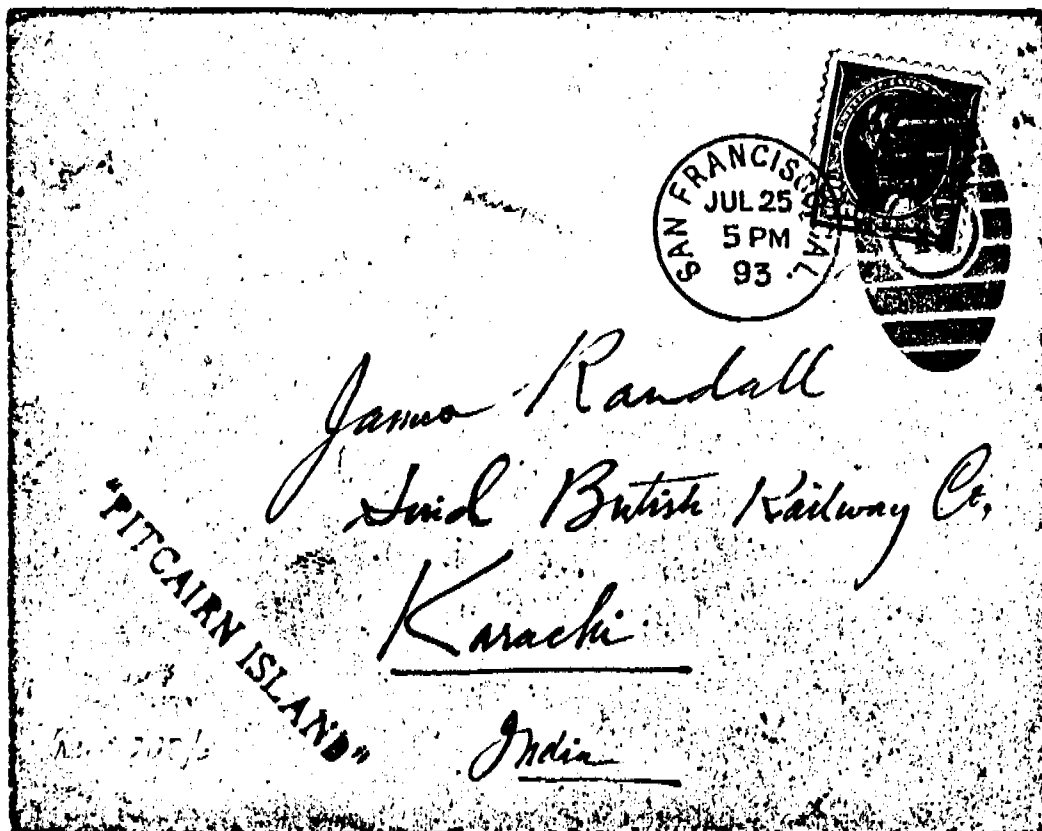 SAN FRANCISCO, CAL.
JUL 25
5 PM
93
James Randall
Sind British Railway Co,
Karachi
India
"PITCAIRN ISLAND"